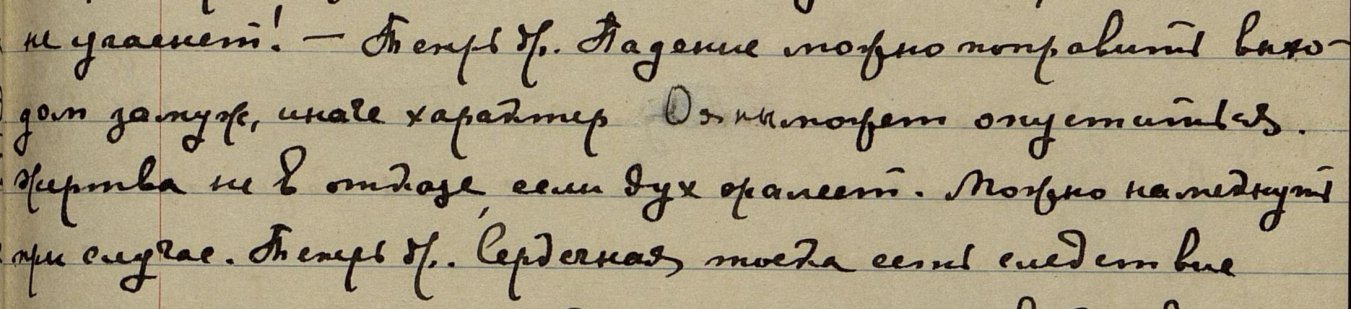 не угаснет! — Теперь др. Падение можно поправить выхо-
дом замуж, иначе характер Ояны может опуститься.
Жертва не в отказе, если дух жалеет. Можно намекнуть
при случае. Теперь др. Сердечная тоска есть следствие